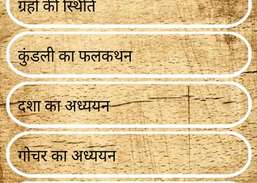 ग्रहों की स्थिति
कुंडली का फलकथन
दशा का अध्ययन
गोचर का अध्ययन